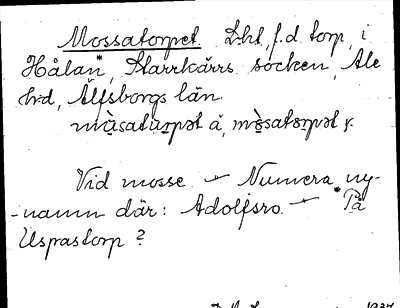 Mossatorpet Lht, f.d. torp, i
Hålan*, Starrkärrs socken, Ale
hrd, Älfsborgs län
mùsatuṛpət ä, mòsatoṛpət y.
Vid mosse. — Numera ny-
-namn där: Adolfsro. — *På
Uspastorp?
1937